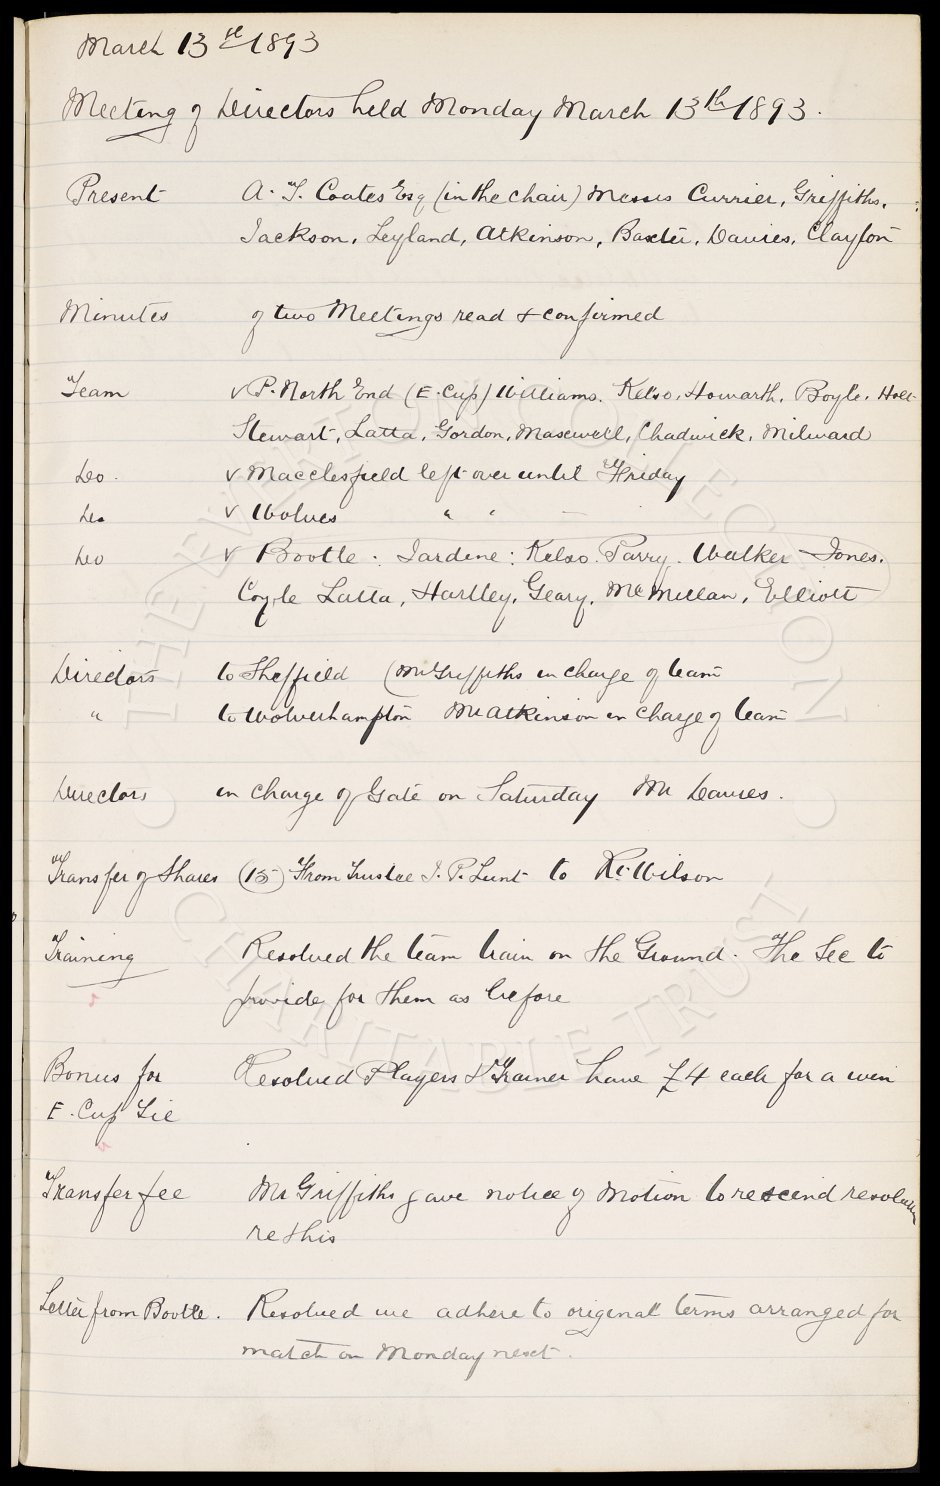 March 13th 1893
Meeting of Directors held Monday March 13th 1893.
Present A. T. Coates Esq (in the chair) Messrs Currier, Griffiths,
Jackson, Leyland, Atkinson, Baxter, Davies, Clayton
Minutes of two Meetings read & confirmed
Team v P. North End (E. Cup) Williams. Kelso, Howarth, Boyle, Holt
Stewart, Latta, Gordon, Maxwell, Chadwick, Milward
Do. v Macclesfield left over until Friday
Do v Wolves " "
Do v Bootle. Jardine: Kelso. Parry. Walker Jones.
Coyle Latta, Hartley, Geary, McMillan, Elliott
Directors to Sheffield (Mr Griffiths in charge of team
" to Wolverhampton Mr Atkinson in charge of team
Directors in charge of Gate on Saturday Mr Davies.
Transfer of Shares (15) From Trustee J. P. Lunt to Rt. Wilson
Training Resolved the team train on the Ground. The Sec to
provide for them as before
Bonus for Resolved Players & Trainer have £4 each for a win
E. Cup Tie
Transfer fee Mr Griffiths gave notice of Motion to rescind resolution
re this
Letter from Bootle. Resolved we adhere to original terms arranged for
match on Monday next.
THE EVERTON COLLECTION
CHARITABLE TRUST